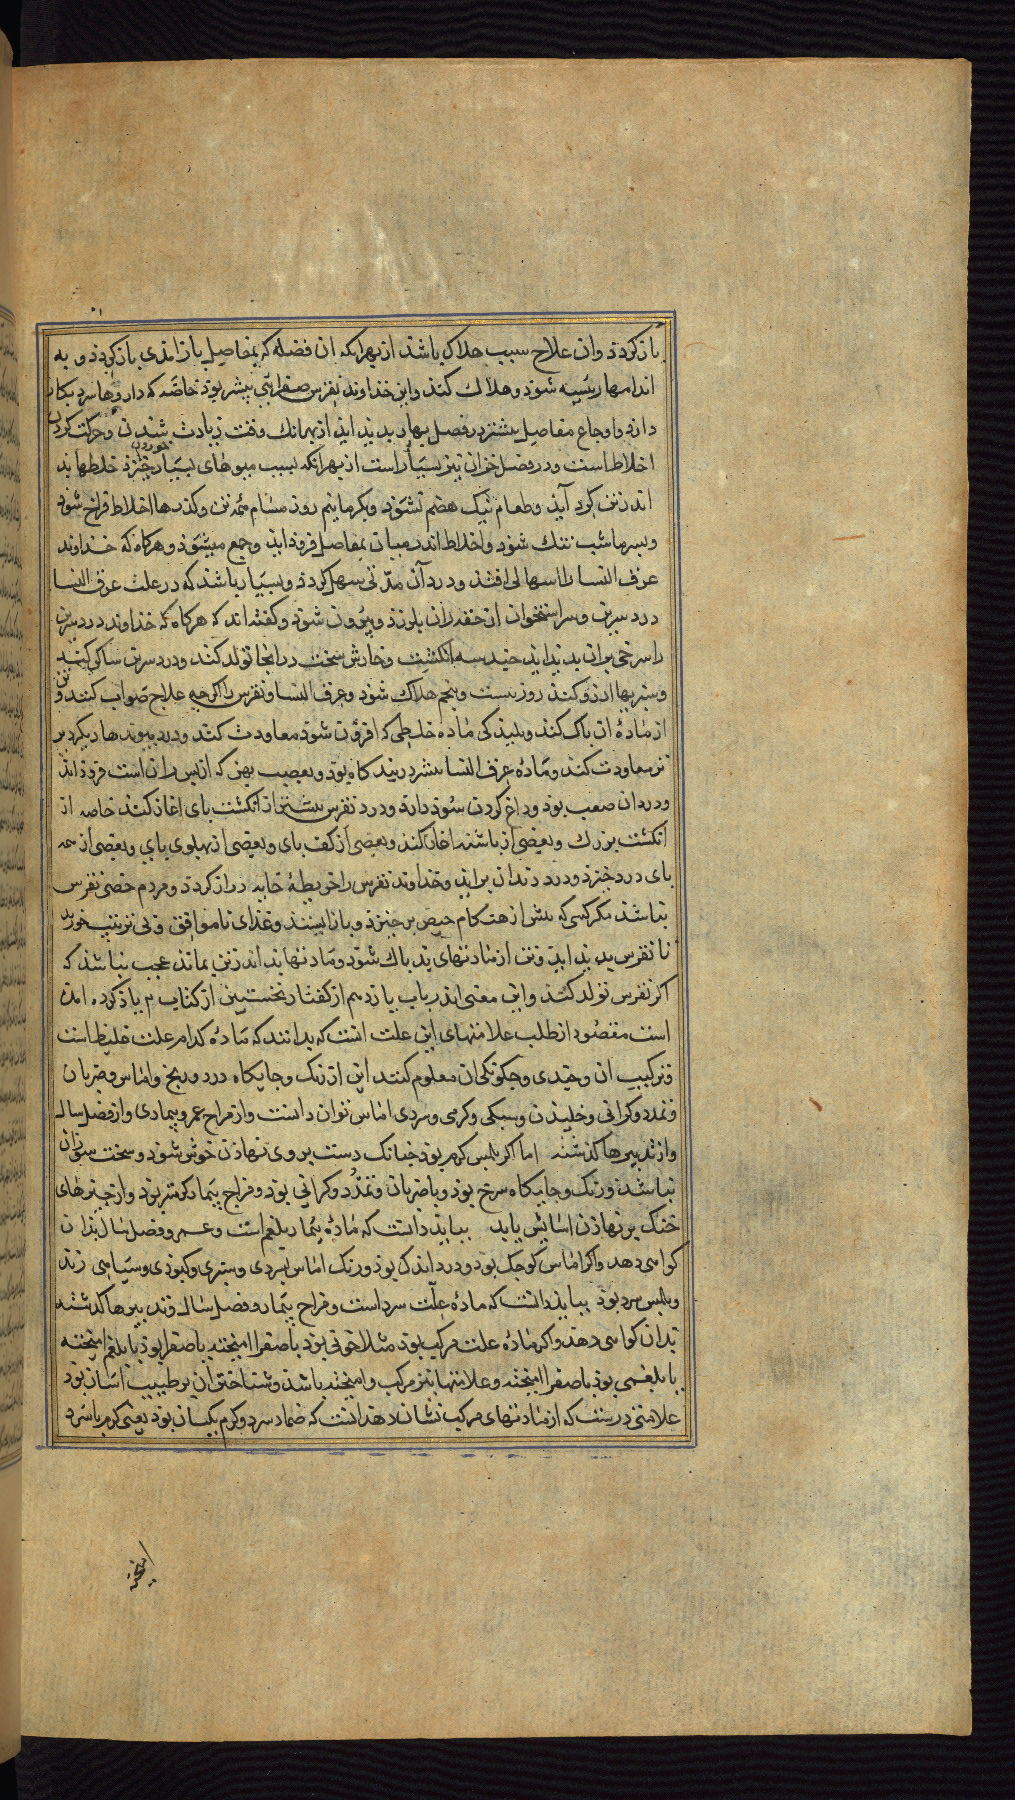 باز کردد وان علاج سبب هلاک باشد از بهرانکه ان فضله که بمفاصل باز امذی باز کردد و به
اندامها رئیسه شود و هلاک کند واین خداوند نقرس صفرایی بیشتر بود خاصه که داروها سرد بکار
دارد و اوجاع مفاصل بیشتر در فصل بهار بدید اید از بهرانک وقت زیادت شدن و حرکت کردن
اخلاط است ودر فصل خزان نیز بسیار است از بهرانکه بسبب میوهای بسیار خوردن خلطها بد
اندر تن کرد آید وطعام نیک هضم نشود وبکرما نیم روز مسام همه تن وکذرها اخلاط فراخ شود
وبسرما شب تنک شود واخلاط اندر میان بمفاصل فروذ اید وجمع میشود و هرکاه که خداوند
عرق النسا را اسهالی افتد ودرد آن مدتی سهل کردد وبسیار باشد که در علت عرق النسا
درد سرین وسر استخوان از حقه ران بلغزد وبیرون شود وکفته اند که هرکاه که خداوند درد سرین
را سرخی بران بدید اید چند سه انکشت وخارش سخت در انجا تولد کند ودرد سرین ساکن کند
وبتریها ارزو کند روز بیست وپنجم هلاک شود وعرق النسا ونقرس را اکرچه علاج صواب کنند و تن
از مادۀ ان پاک کنند ولیکن کی ماده خلطی که افزون شود معاودت کند ودرد پیوندها دیکر بر
نیز معاودت کند ومادۀ عرق النسا بیشتر در بندکاه بود وبعصب پهن که از پس ران است فروذ اید
ودردان صعب بود وداغ کردن سود دارد ودرد نقرس بیشتر از انکشت بای اغاز کند خاصه از
انکشت بزرک وبعضی از پاشنه اغاز کند وبعضی از کف بای وبعضی از پهلوی پای وبعضی از همه
بای درد خیزد ودرد تا ران براید وخداوند نقرس را خریطۀ خایه دراز کردد ومردم خصی نقرس
نباشد مکر کسی که بیش از هنکام حیض برخیزد وباز ایستد وغذای ناموافق وبی ترتیب خورد
تا نقرس بدید اید وتن از مادتهای بد پاک شود ومادتها بد اندر تن بماند عجب نباشد که
اکر نقرس تولد کند واین معنی اندر باب یازدهم از کفتار نخستین از کتاب م یاد کرده امد
است مقصود از طلب علامتهای این علت انست که بدانند که مادۀ کدام علت خلیط است
وترکیب ان وچندی وچکونکی ان معلوم کنند این از رنک وجایکاه درد ورنج واماس وضربان
وتمدد وکرانی وخلیدن وسبکی وکرمی وسردی اماس توان دانست واز مزاج عمر وبیماری واز فصل سال
واز تدبیرها کذشته اما اکر بلمس کرم بود چنانک دست بر وی نهاذن خوش شود وسخت سوزان
نباشد ورنک وجایکاه سرخ بود وبا ضربان وتمدد وکرانی بود ومزاج بیمار کرمتر بود واز چیزهای
خنک بر نهاذن اسایش یابد بباید دانست که مادۀ بیمار بلغم است وعمر وفصل سال بذان
کواهی دهد واکر اماس کوچک بود ودرد اندک بود ورنک اماس بسردی وسبزی وکبودی وسیاهی زند
وبلمس سرد بود بباید دانست که مادۀ علت سرد است ومزاج بیمار وفصل سال وتدبیرها کذشته
بدان کواهی دهد واکر مادۀ علت مرکب بود مثلا خونی بود با صفرا امیخته یا صفرا بود با بلغم امیخته
یا بلغمی بود با صفرا امیخته وعلامتها نیز مرکب وامیخته باشد وشناختن ان بر طبیب اسان بود
علامتی درست که از مادتهای مرکب نشان دهد انست که ضماد سرد وکرم یکسان بود یعنی کرم با سرد